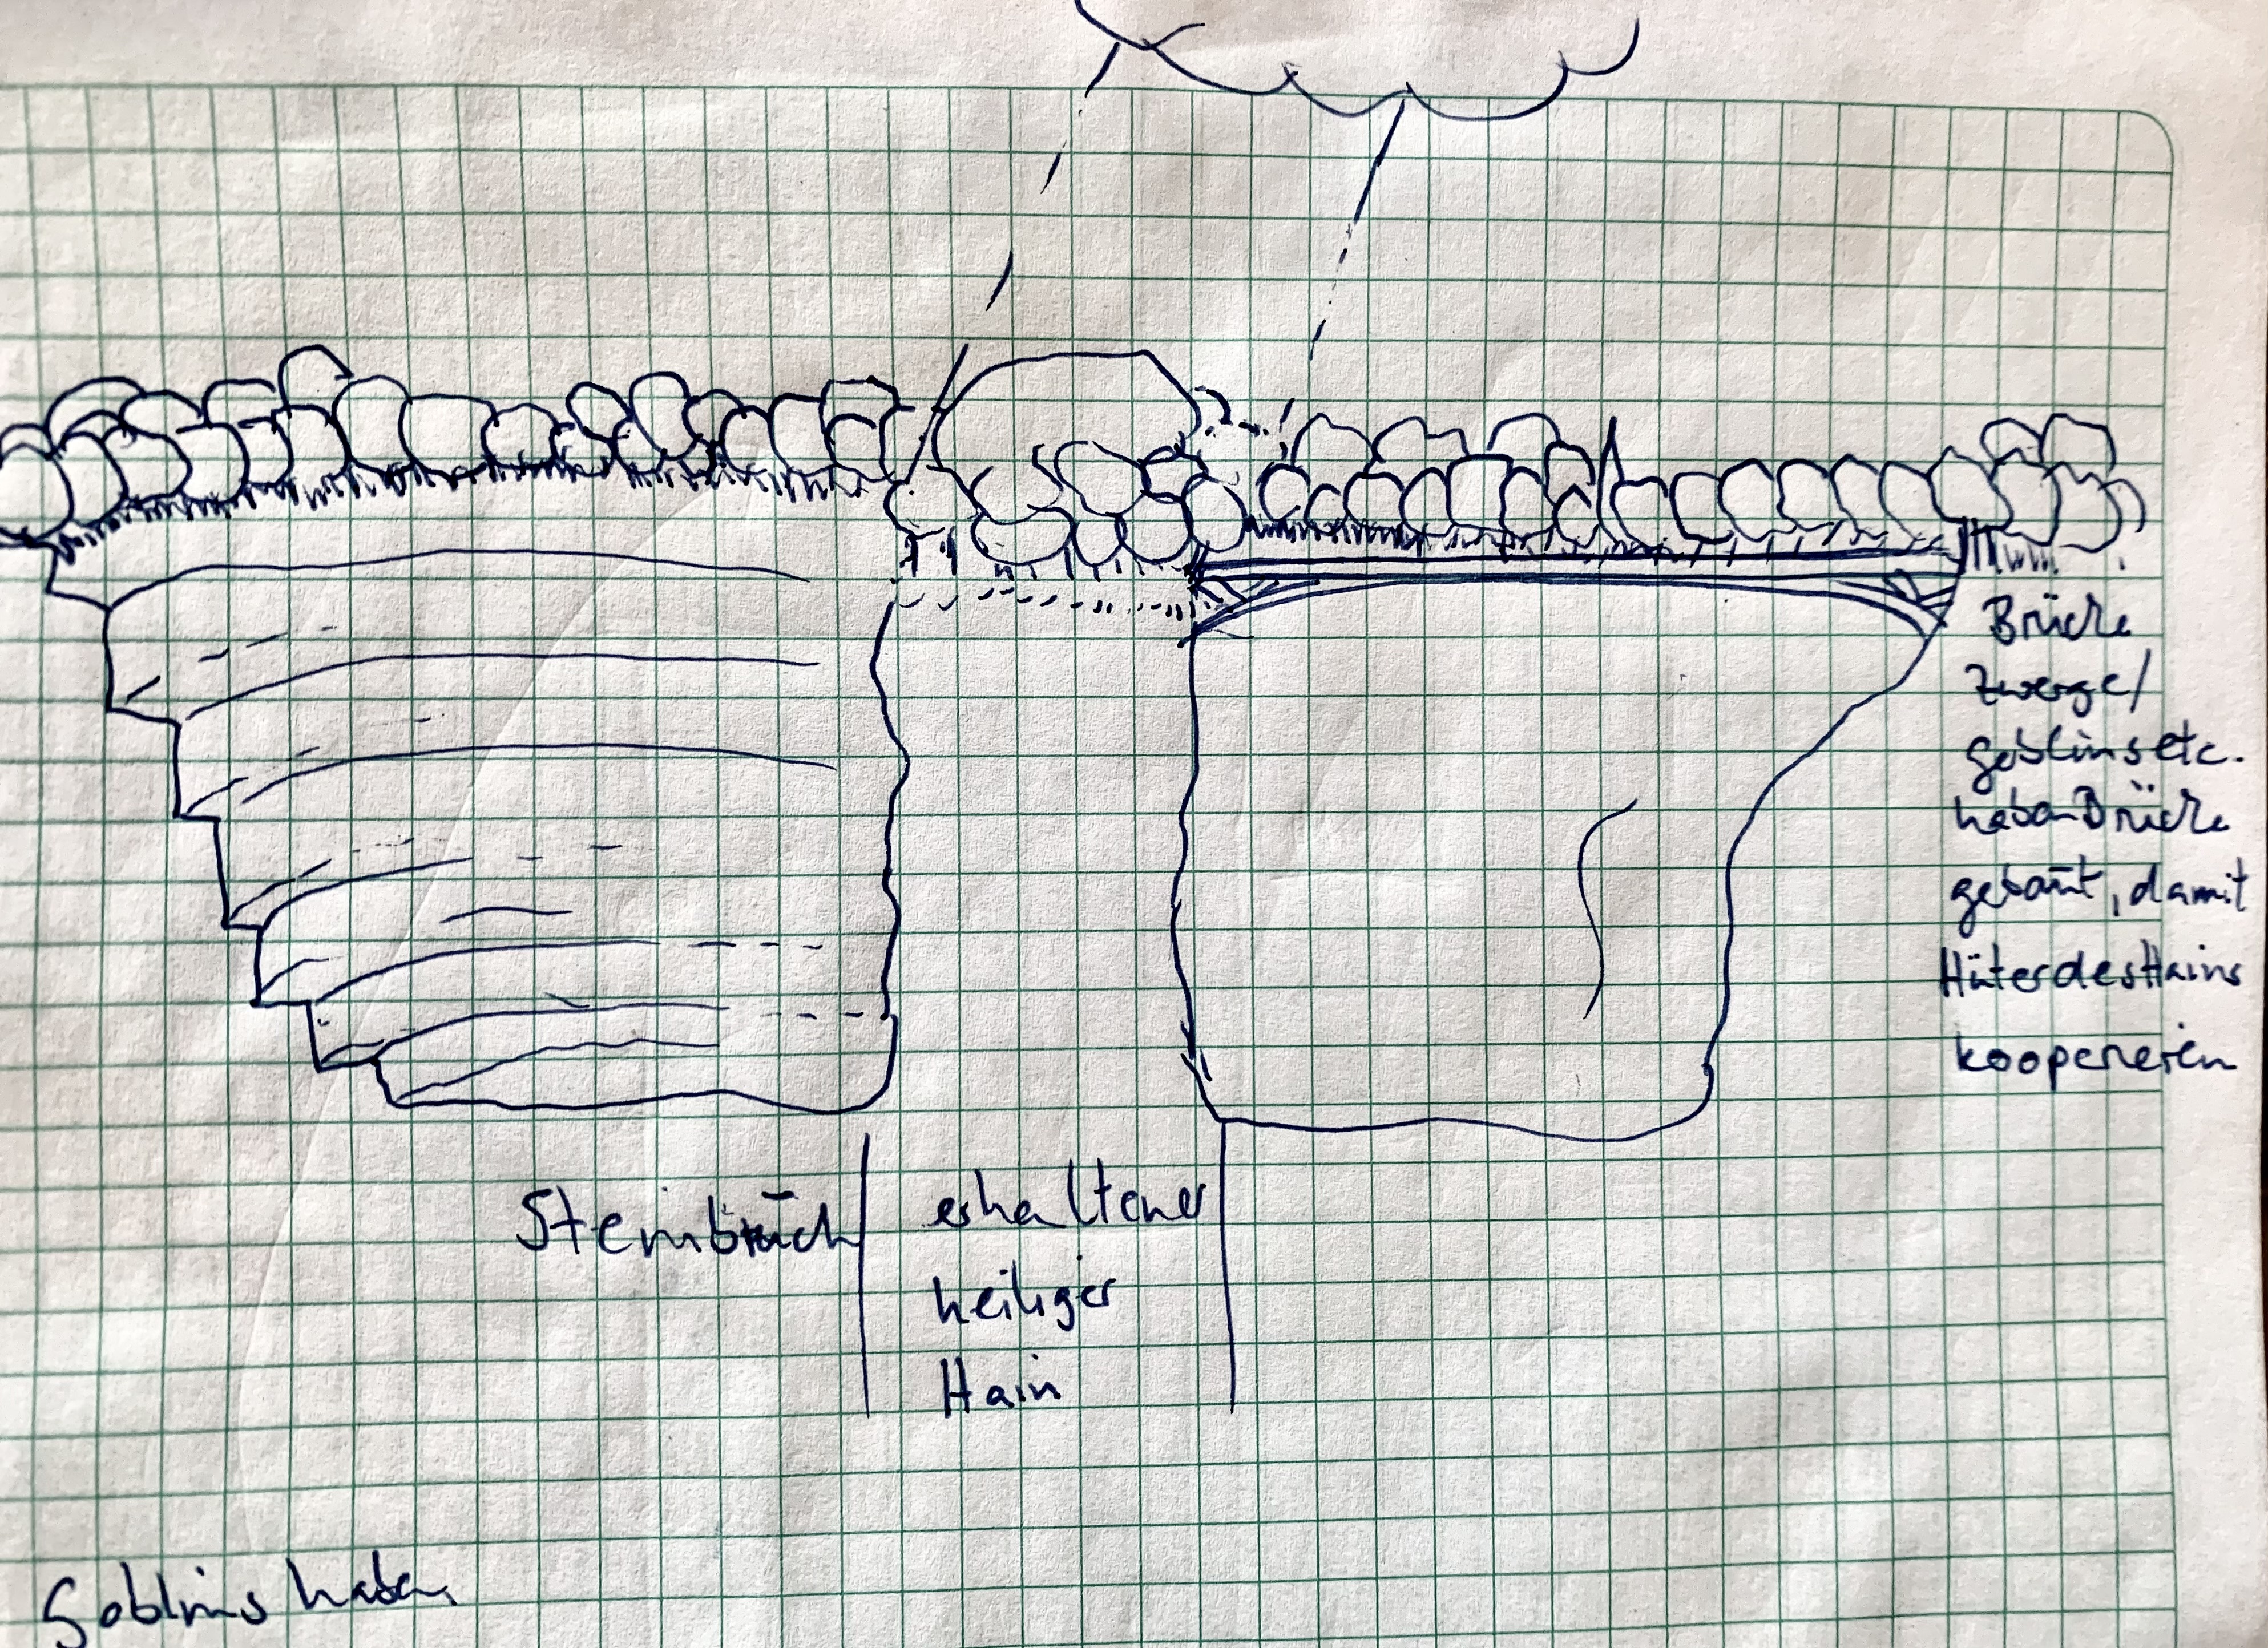 Brücke
Zwerge/
goblins etc.
haben Brücke
gebaut, damit
Hüter des Hains
kooperieren
Steinbruch
erhaltener
heiliger
Hain
Goblins haben